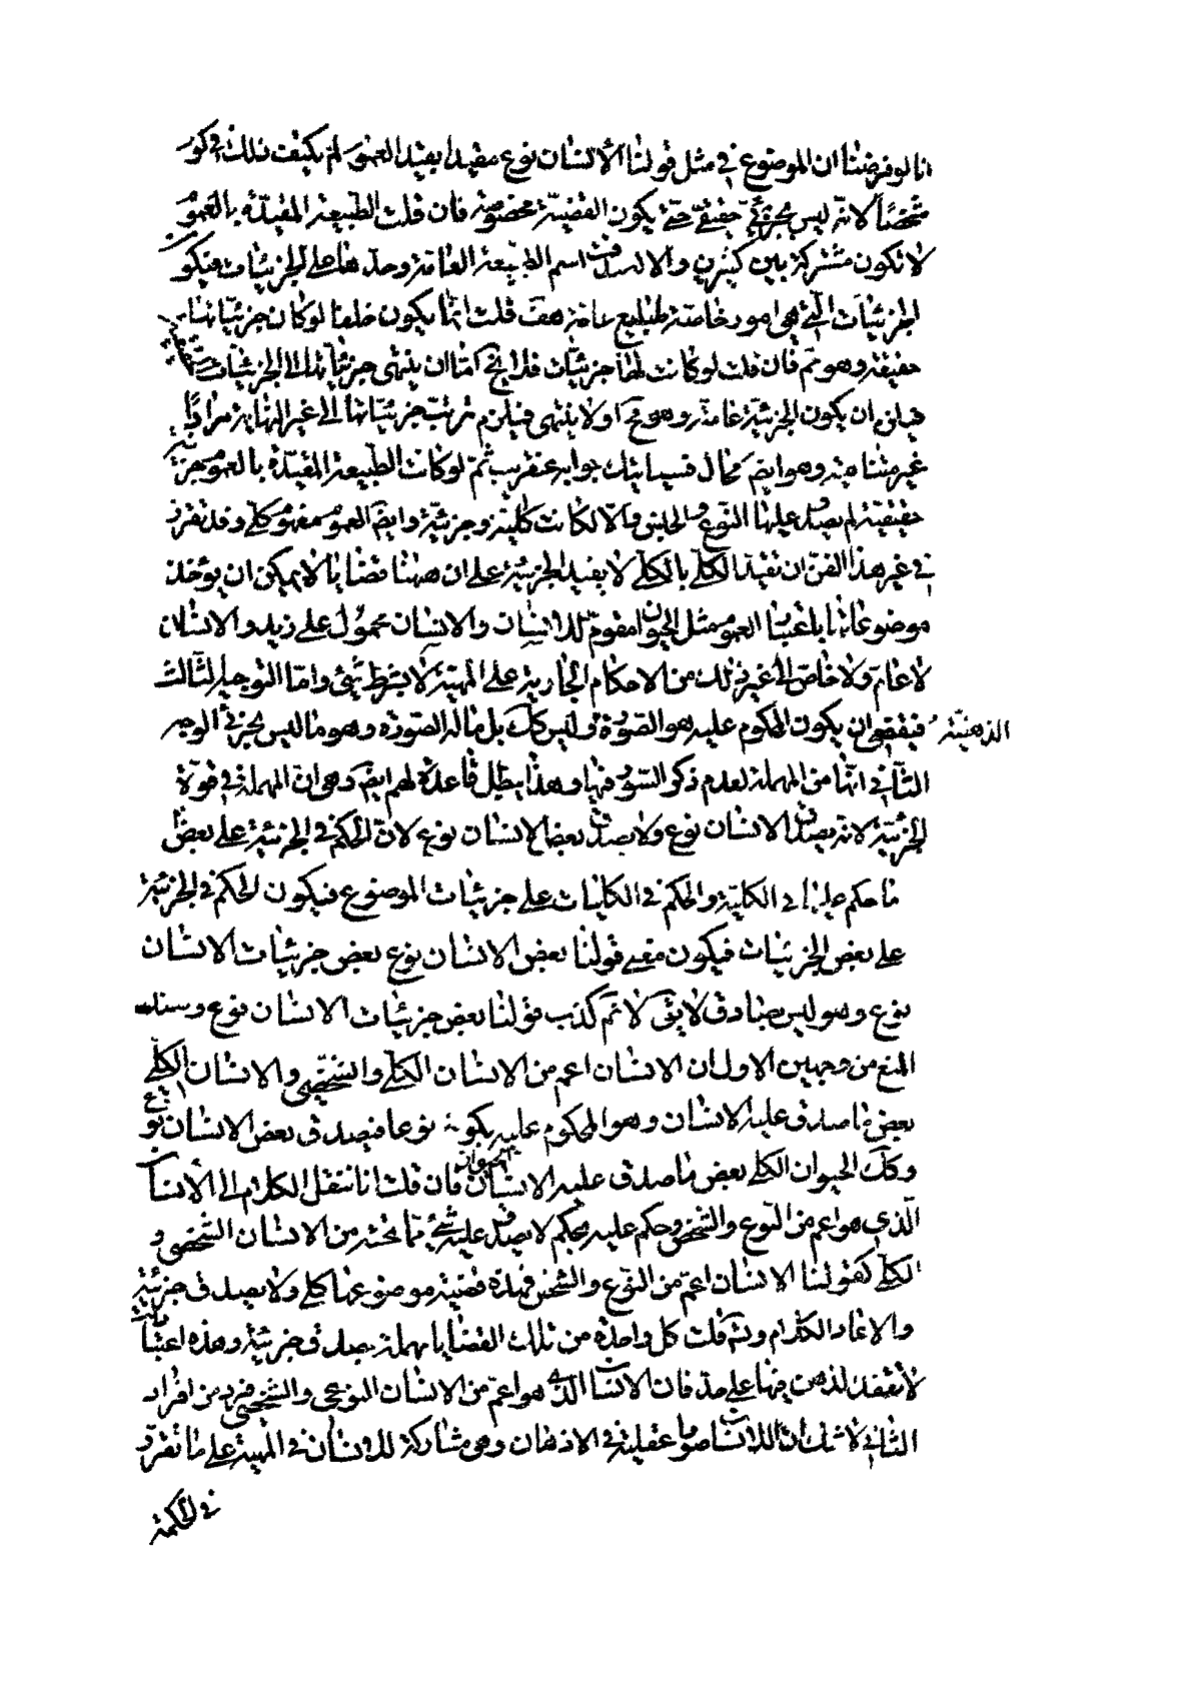 انا لو فرضنا ان الموضوع في مثل قولنا الانسان نوع مقيد بقيد العموم لم يكيف ذلك في كو
شخصا لانه ليس بجزئي حقيقي حتى يكون القضية مخصوصة فان قلت الطبيعة المقيدة بالعموم
لا تكون مشتركة بين كثيرين والا لصدقت اسم الطبيعة العامة وحدها على الجزئيات فيكو
الجزئيات التي هي امور خاصة طبايع عامة هف قلت انما يكون خلفا لو كان جزئياتها
حقيقة وهو تم فان قلت لو كانت لها جزئيات فلا يخ اما ان ينتهي جزئيا تلك الى الجزئيات
فيلزم ان يكون الجزئية عامة وهو مح او لا ينتهي فيلزم ترتب جزئياتها الى غير النهاية مرارا
غير متناهية وهو ايضا محال فسياتيك جوابه عنقريب ثم لو كانت الطبيعة المقيدة بالعموم جزئية
حقيقية لم يصدق عليها النوع والجنس والا لكانت كلية وجزئية وايض العموم مفهوم كلي وقد تقرر
في غير هذا الفن ان تقيد الكلي بالكلي لا يفيد الجزئية على ان ههنا قضايا لا يمكن ان يؤخذ
موضوعاتها باعتبار العموم مثل الحيوان مقوم للانسان والانسان محمول على زيد والانسان
لا عام ولا خاص الى غير ذلك من الاحكام الجارية على المهية لا بشرط شيء واما التوجيه الثالث
فيقتضي ان يكون المحكوم عليه هو الصورة وليس كك بل ماله الصورة وهو ما ليس بجزئي الوجه
الذهنية
الثاني انها من المهملة لعدم ذكر السور فيها وهذا يبطل قاعدة لهم ايض وهو ان المهملة في قوة
الجزئية لانه يصدق الانسان نوع ولا يصدق بعض الانسان نوع لان الحكم في الجزئية على بعض
ما حكم عليه في الكلية والحكم في الكليات على جزئيات الموضوع فيكون الحكم في الجزئية
على بعض الجزئيات فيكون معنى قولنا بعض الانسان نوع بعض جزئيات الانسان
نوع وهو ليس بصادق لا يق لا تم كذب قولنا بعض جزئيات الانسان نوع وسند
المنع من وجهين الاول ان الانسان اعم من الانسان الكلي والشخصي والانسان الكلي
بعض ما صدق عليه الانسان وهو المحكوم عليه بكونه نوعا فيصدق بعض الانسان نوع
وكك الحيوان الكلي بعض ما صدق عليه الحيوان فان قلت انا ننقل الكلام الى الانسا
الذي هو اعم من النوع والشخص وحكم عليه بحكم لا يصدق عليه شيء مما تحته من الانسان الشخصي و
الكلي كقولنا الانسان اعم من النوع والشخص فهذه قضية موضوعها كلي ولا يصدق جزئية
والا عاد الكلام وتم قلت كل واحدة من تلك القضايا مهملة يصدق جزئية وهذه اعتبارات
لا تقف الذهن فيها على حد فان الانسان الذي هو اعم من الانسان النوعي والشخصي فرد من افراد
الثاني لا شك ان للانسان صورا عقلية في الاذهان وهي مشاركة للانسان في المهية على ما تقرر
في الحكمة